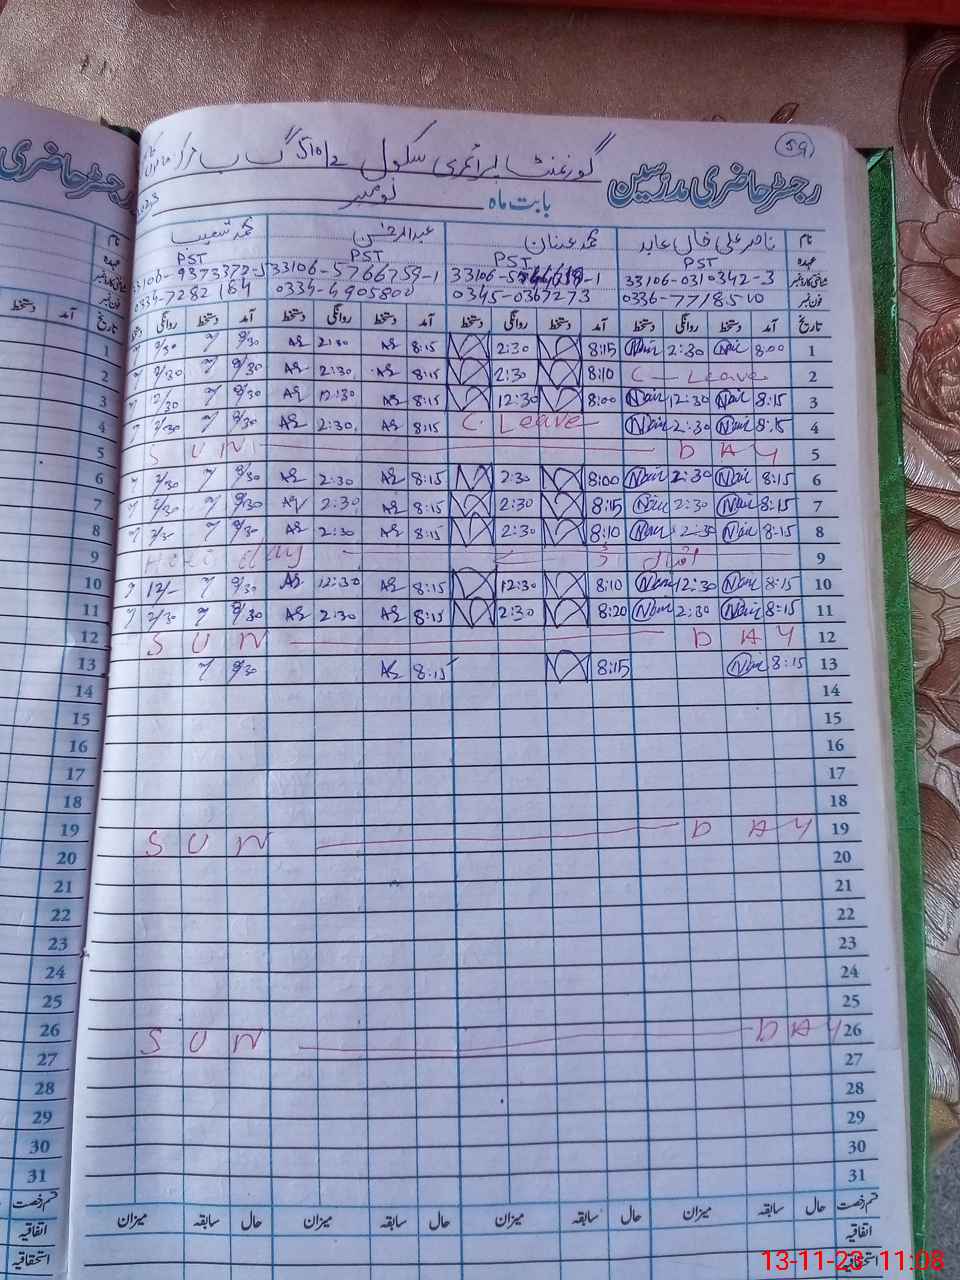 59
رجسٹر حاضری مدرسین گورنمنٹ پرائمری سکول 510/2 گ ب
بابت ماہ نومبر
نام ناصر علی خان عابد محمد عدنان عبدالرحمٰن محمد شعیب
عہدہ PST PST PST PST
شناختی کارڈ نمبر 33106-0310342-3 33106-5766759-1
فون نمبر 0336-7718510 0345-0367273 0334-4905800 0334-7282184
تاریخ آمد دستخط روانگی دستخط آمد دستخط روانگی دستخط آمد دستخط روانگی دستخط آمد دستخط روانگی دستخط
1 8:00 Nair 2:30 Nair 8:15 2:30 8:15 AS 2:30 AS 8/30 2/30
2 C - Leave 8:10 2:30 8:15 AS 2:30 AS 8/30 2/30
3 8:15 Nair 12:30 Nair 8:00 12:30 8:15 AS 12:30 AS 8/30 12/30
4 8:15 Nair 2:30 Nair C. Leave 8:15 AS 2:30 AS 8/30 2/30
5 SUN DAY
6 8:15 Nair 2:30 Nair 8:00 2:30 8:15 AS 2:30 AS 8/30 2/30
7 8:15 Nair 2:30 Nair 8:15 2:30 8:15 AS 2:30 AS 8/30 2/30
8 8:15 Nair 2:30 Nair 8:10 2:30 8:15 AS 2:30 AS 8/30 2/30
9 اقبال ڈے Holi day
10 8:15 Nair 12:30 Nair 8:10 12:30 8:15 AS 12:30 AS 8/30 12/-
11 8:15 Nair 2:30 Nair 8:20 2:30 8:15 AS 2:30 AS 8/30 2/30
12 SUN DAY
13 8:15 Nair 8:15 8:15 AS 8/30
14
15
16
17
18
19 SUN DAY
20
21
22
23
24
25
26 SUN DAY
27
28
29
30
31
قسم رخصت حال سابقہ میزان حال سابقہ میزان حال سابقہ میزان حال سابقہ میزان
اتفاقیہ
استحقاقیہ
رجسٹر حاضری
نام
عہدہ
شناختی کارڈ نمبر
فون نمبر
تاریخ آمد دستخط
1
2
3
4
5
6
7
8
9
10
11
12
13
14
15
16
17
18
19
20
21
22
23
24
25
26
27
28
29
30
31
قسم رخصت
اتفاقیہ
استحقاقیہ
13-11-23 11:08